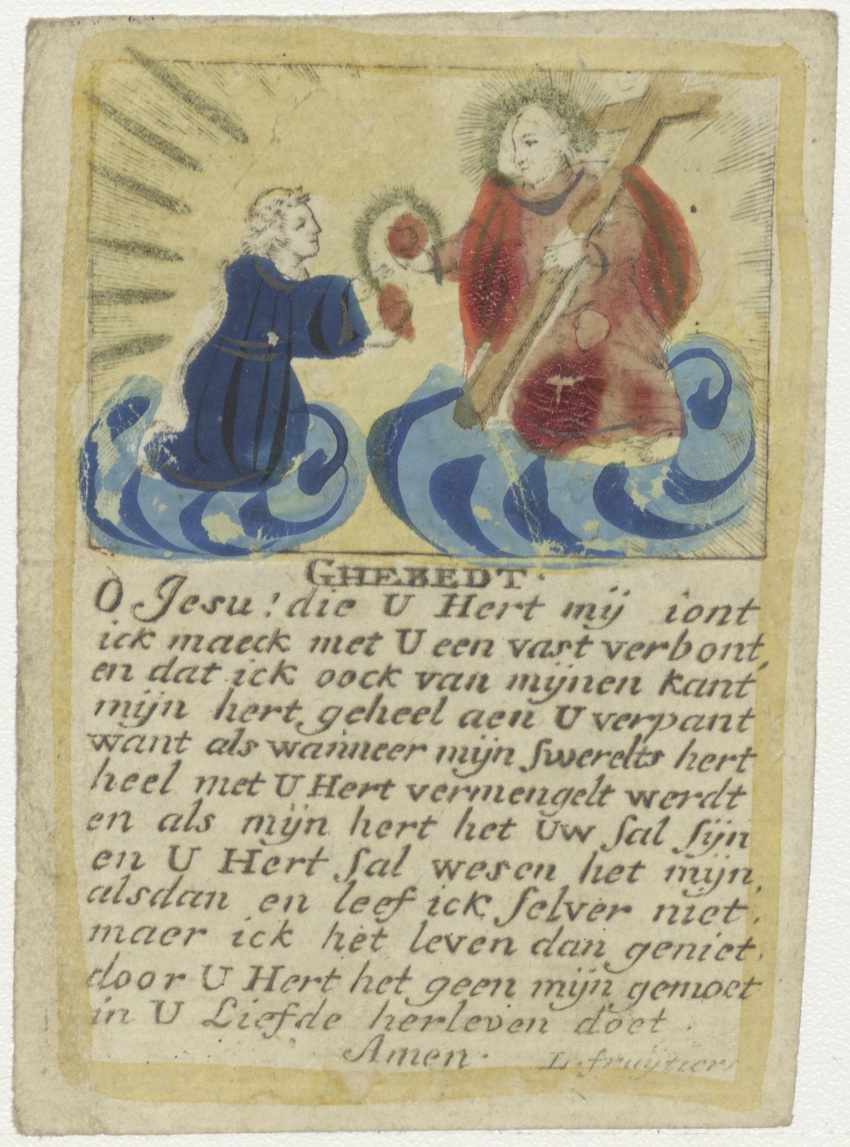 GHEBEDT.
O Jesu! die U Hert mij iont
ick maeck met U een vast verbont,
en dat ick oock van mijnen kant
mijn hert geheel aen U verpant
want als wanneer mijn ſwerelts hert
heel met U Hert vermengelt werdt
en als mijn hert het Uw ſal ſijn
en U Hert ſal wesen het mijn,
alsdan en leef ick ſelver niet,
maer ick het leven dan geniet,
door U Hert het geen mijn gemoet
in U Liefde herleven doet.
Amen.
L. fruijtiers